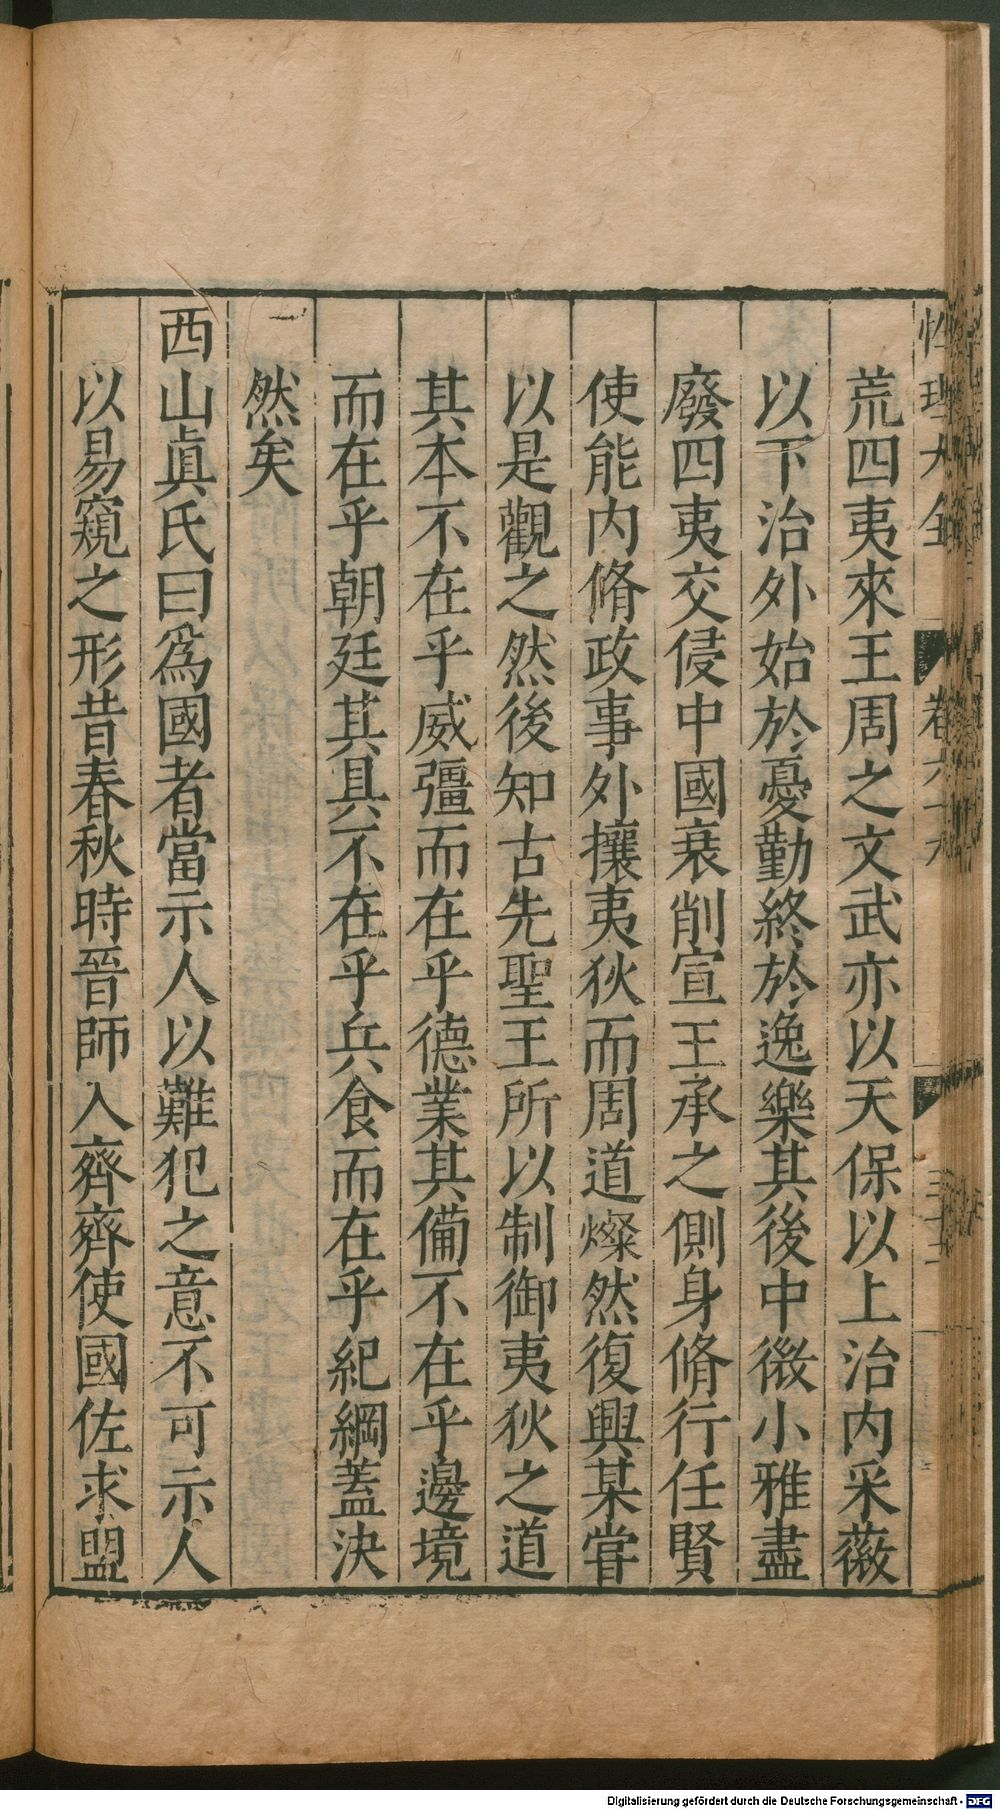 性理大全 卷六十九
荒四夷來王周之文武亦以天保以上治內采薇
以下治外始於憂勤終於逸樂其後中微小雅盡
廢四夷交侵中國衰削宣王承之側身脩行任賢
使能內脩政事外攘夷狄而周道燦然復興某嘗
以是觀之然後知古先聖王所以制御夷狄之道
其本不在乎威彊而在乎德業其備不在乎邊境
而在乎朝廷其具不在乎兵食而在乎紀綱蓋決
然矣
西山眞氏曰爲國者當示人以難犯之意不可示人
以易窺之形昔春秋時晉師入齊齊使國佐求盟
Digitalisierung gefördert durch die Deutsche Forschungsgemeinschaft - DFG